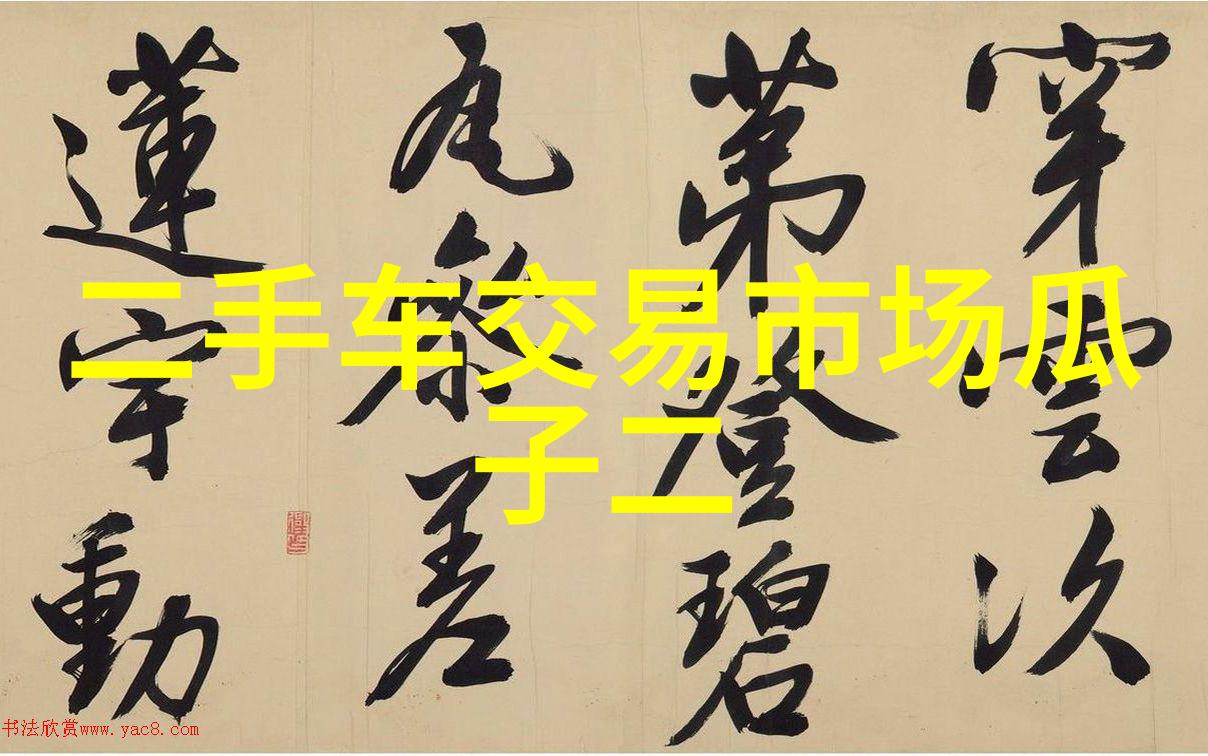 穿雲次
苐登碧
瓦叅差
蓮宇動
二手车交易市场瓜
子二
书法欣赏www.yac8.com